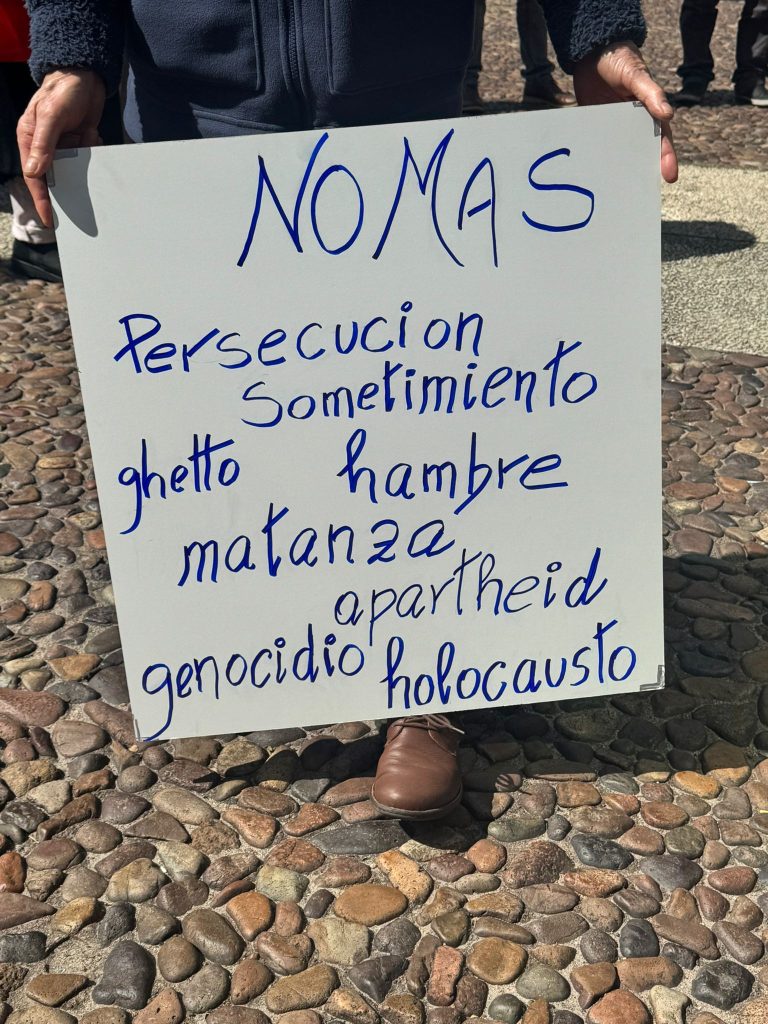 NO MAS
Persecucion
Sometimiento
ghetto hambre
matanza
apartheid
genocidio holocausto